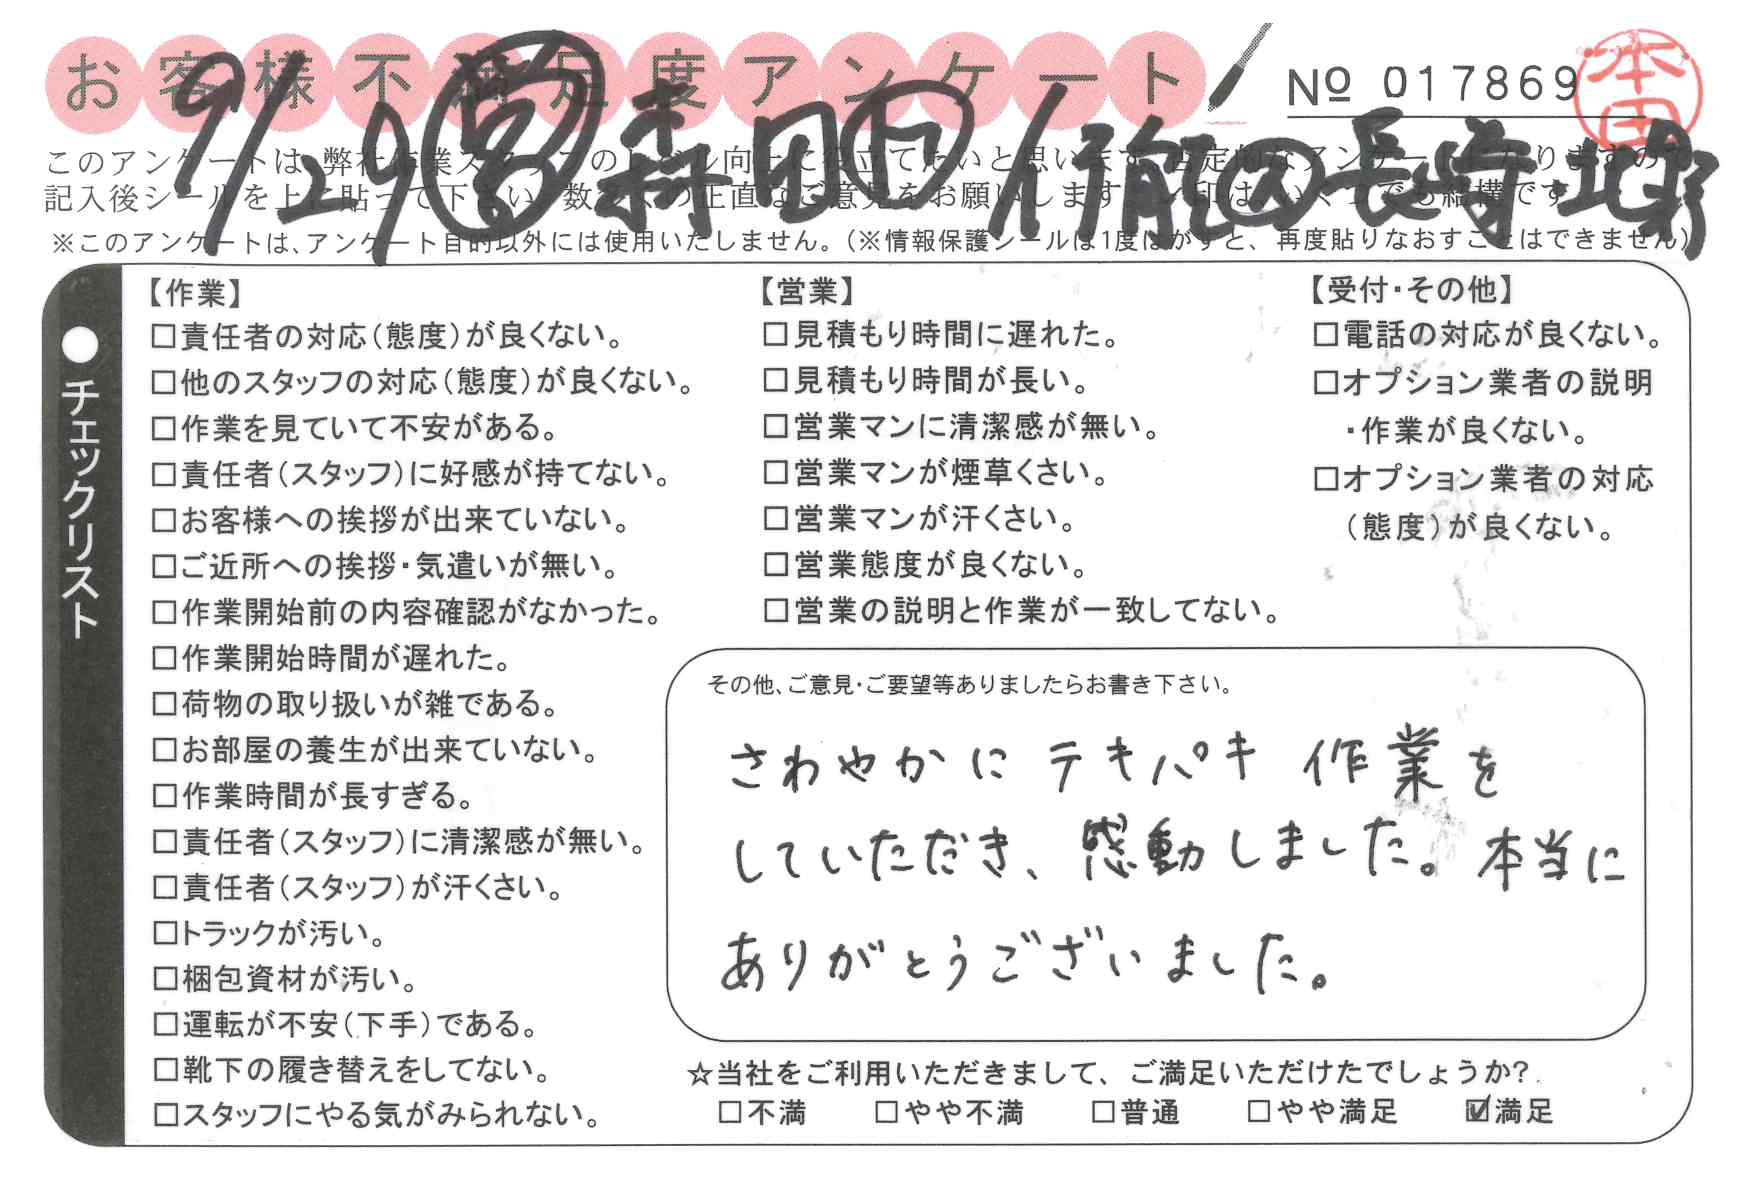 お客様不満足度アンケート
№ 017869
本田
9/29 営 森田
長
このアンケートは、弊社作業スタッフのレベル向上に役立てたいと思います。否定的なアンケートになりますので
記入後シールを上に貼って下さい。数多くの正直なご意見をお願いします。レ印は、いくつでも結構です。
※このアンケートは、アンケート目的以外には使用いたしません。(※情報保護シールは1度はがすと、再度貼りなおすことはできません)
チェックリスト
【作業】
□責任者の対応(態度)が良くない。
□他のスタッフの対応(態度)が良くない。
□作業を見ていて不安がある。
□責任者(スタッフ)に好感が持てない。
□お客様への挨拶が出来ていない。
□ご近所への挨拶・気遣いが無い。
□作業開始前の内容確認がなかった。
□作業開始時間が遅れた。
□荷物の取り扱いが雑である。
□お部屋の養生が出来ていない。
□作業時間が長すぎる。
□責任者(スタッフ)に清潔感が無い。
□責任者(スタッフ)が汗くさい。
□トラックが汚い。
□梱包資材が汚い。
□運転が不安(下手)である。
□靴下の履き替えをしてない。
□スタッフにやる気がみられない。
【営業】
□見積もり時間に遅れた。
□見積もり時間が長い。
□営業マンに清潔感が無い。
□営業マンが煙草くさい。
□営業マンが汗くさい。
□営業態度が良くない。
□営業の説明と作業が一致してない。
【受付・その他】
□電話の対応が良くない。
□オプション業者の説明
・作業が良くない。
□オプション業者の対応
(態度)が良くない。
その他、ご意見・ご要望等ありましたらお書き下さい。
さわやかに テキパキ 作業を
していただき、感動しました。本当に
ありがとうございました。
☆当社をご利用いただきまして、ご満足いただけたでしょうか?
□不満 □やや不満 □普通 □やや満足 ☑満足